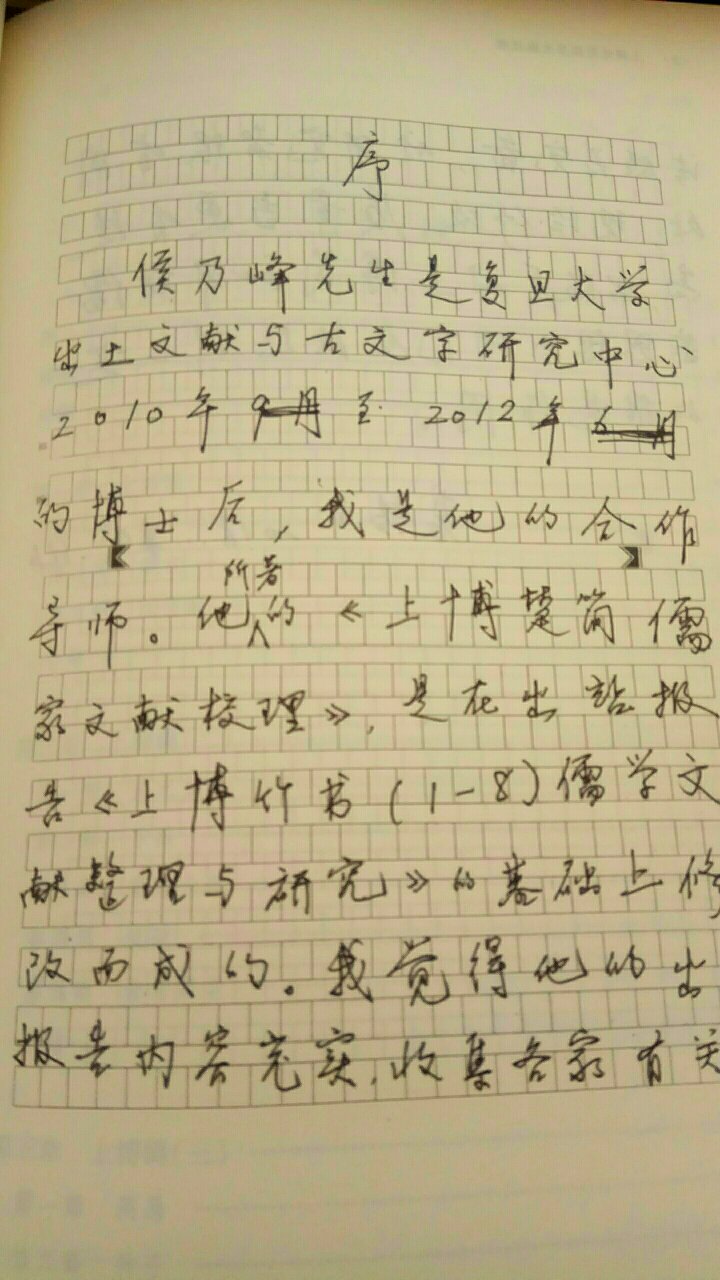 序
侯乃峰先生是复旦大学
出土文献与古文字研究中心
2010年9月至2012年6月
的博士后,我是他的合作
导师。他所著的《上博楚简儒
家文献校理》,是在出站报
告《上博竹书(1-8)儒学文
献整理与研究》的基础上修
改而成的。我觉得他的出
报告内容充实,收集各家有关